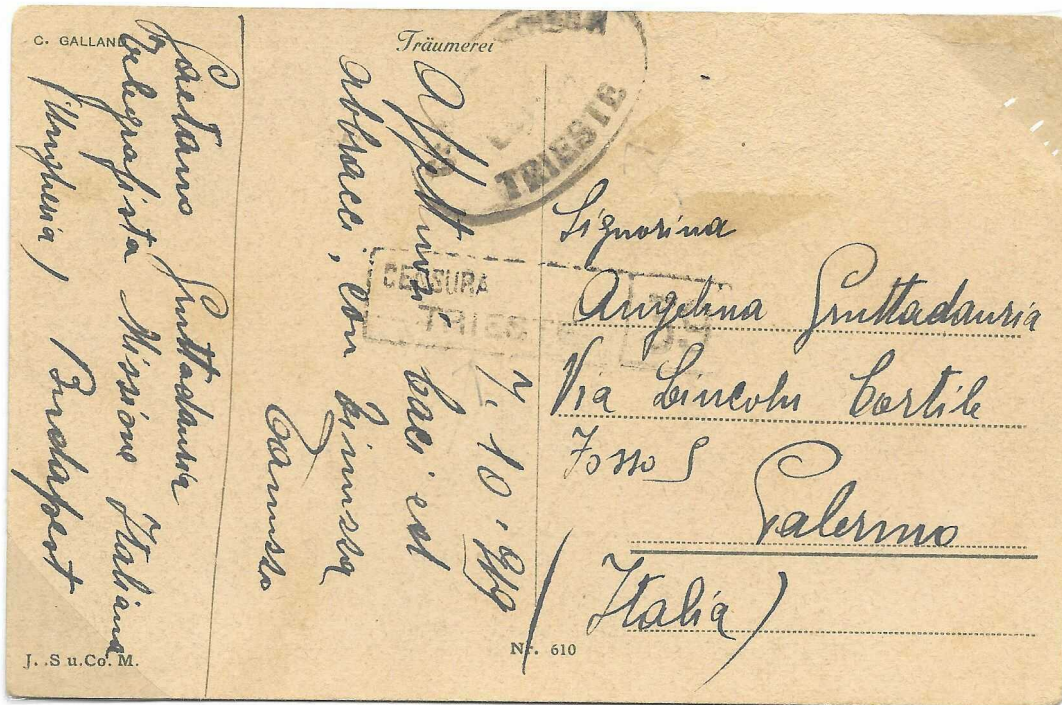 C. GALLAND
Träumerei
TRIESTE
Gaetano Gruttadauria
Telegrafista Missione Italiana
(Ungheria) Budapest
Affettuosi baci ed
abbracci, con
7. 10. 919
CENSURA
TRIESTE
39
Signorina
Angelina Gruttadauria
Via Lincoln Cortile
Fosso 5
Palermo
(Italia)
J. S u. Co. M.
Nr. 610